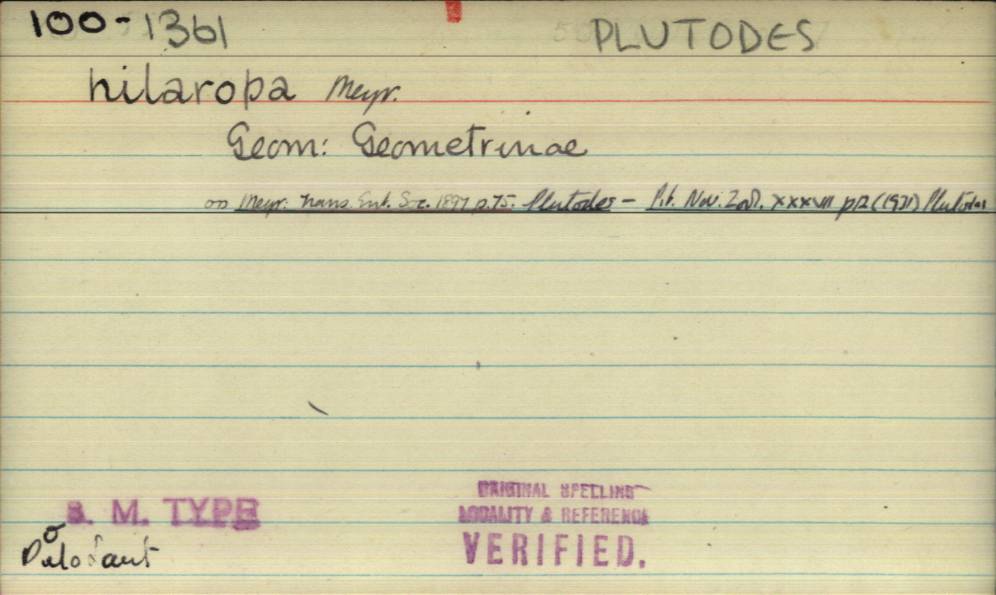 100-1361 PLUTODES
hilaropa Meyr.
Geom: Geometrinae
Meyr: Trans. Ent. Soc. 1897 p.75. Plutodes - Nov. Zool. xxxvii p12 (1931) Plutodes
B. M. TYPE
ORIGINAL SPELLING
LOCALITY & REFERENCE
VERIFIED.
Pulo Laut